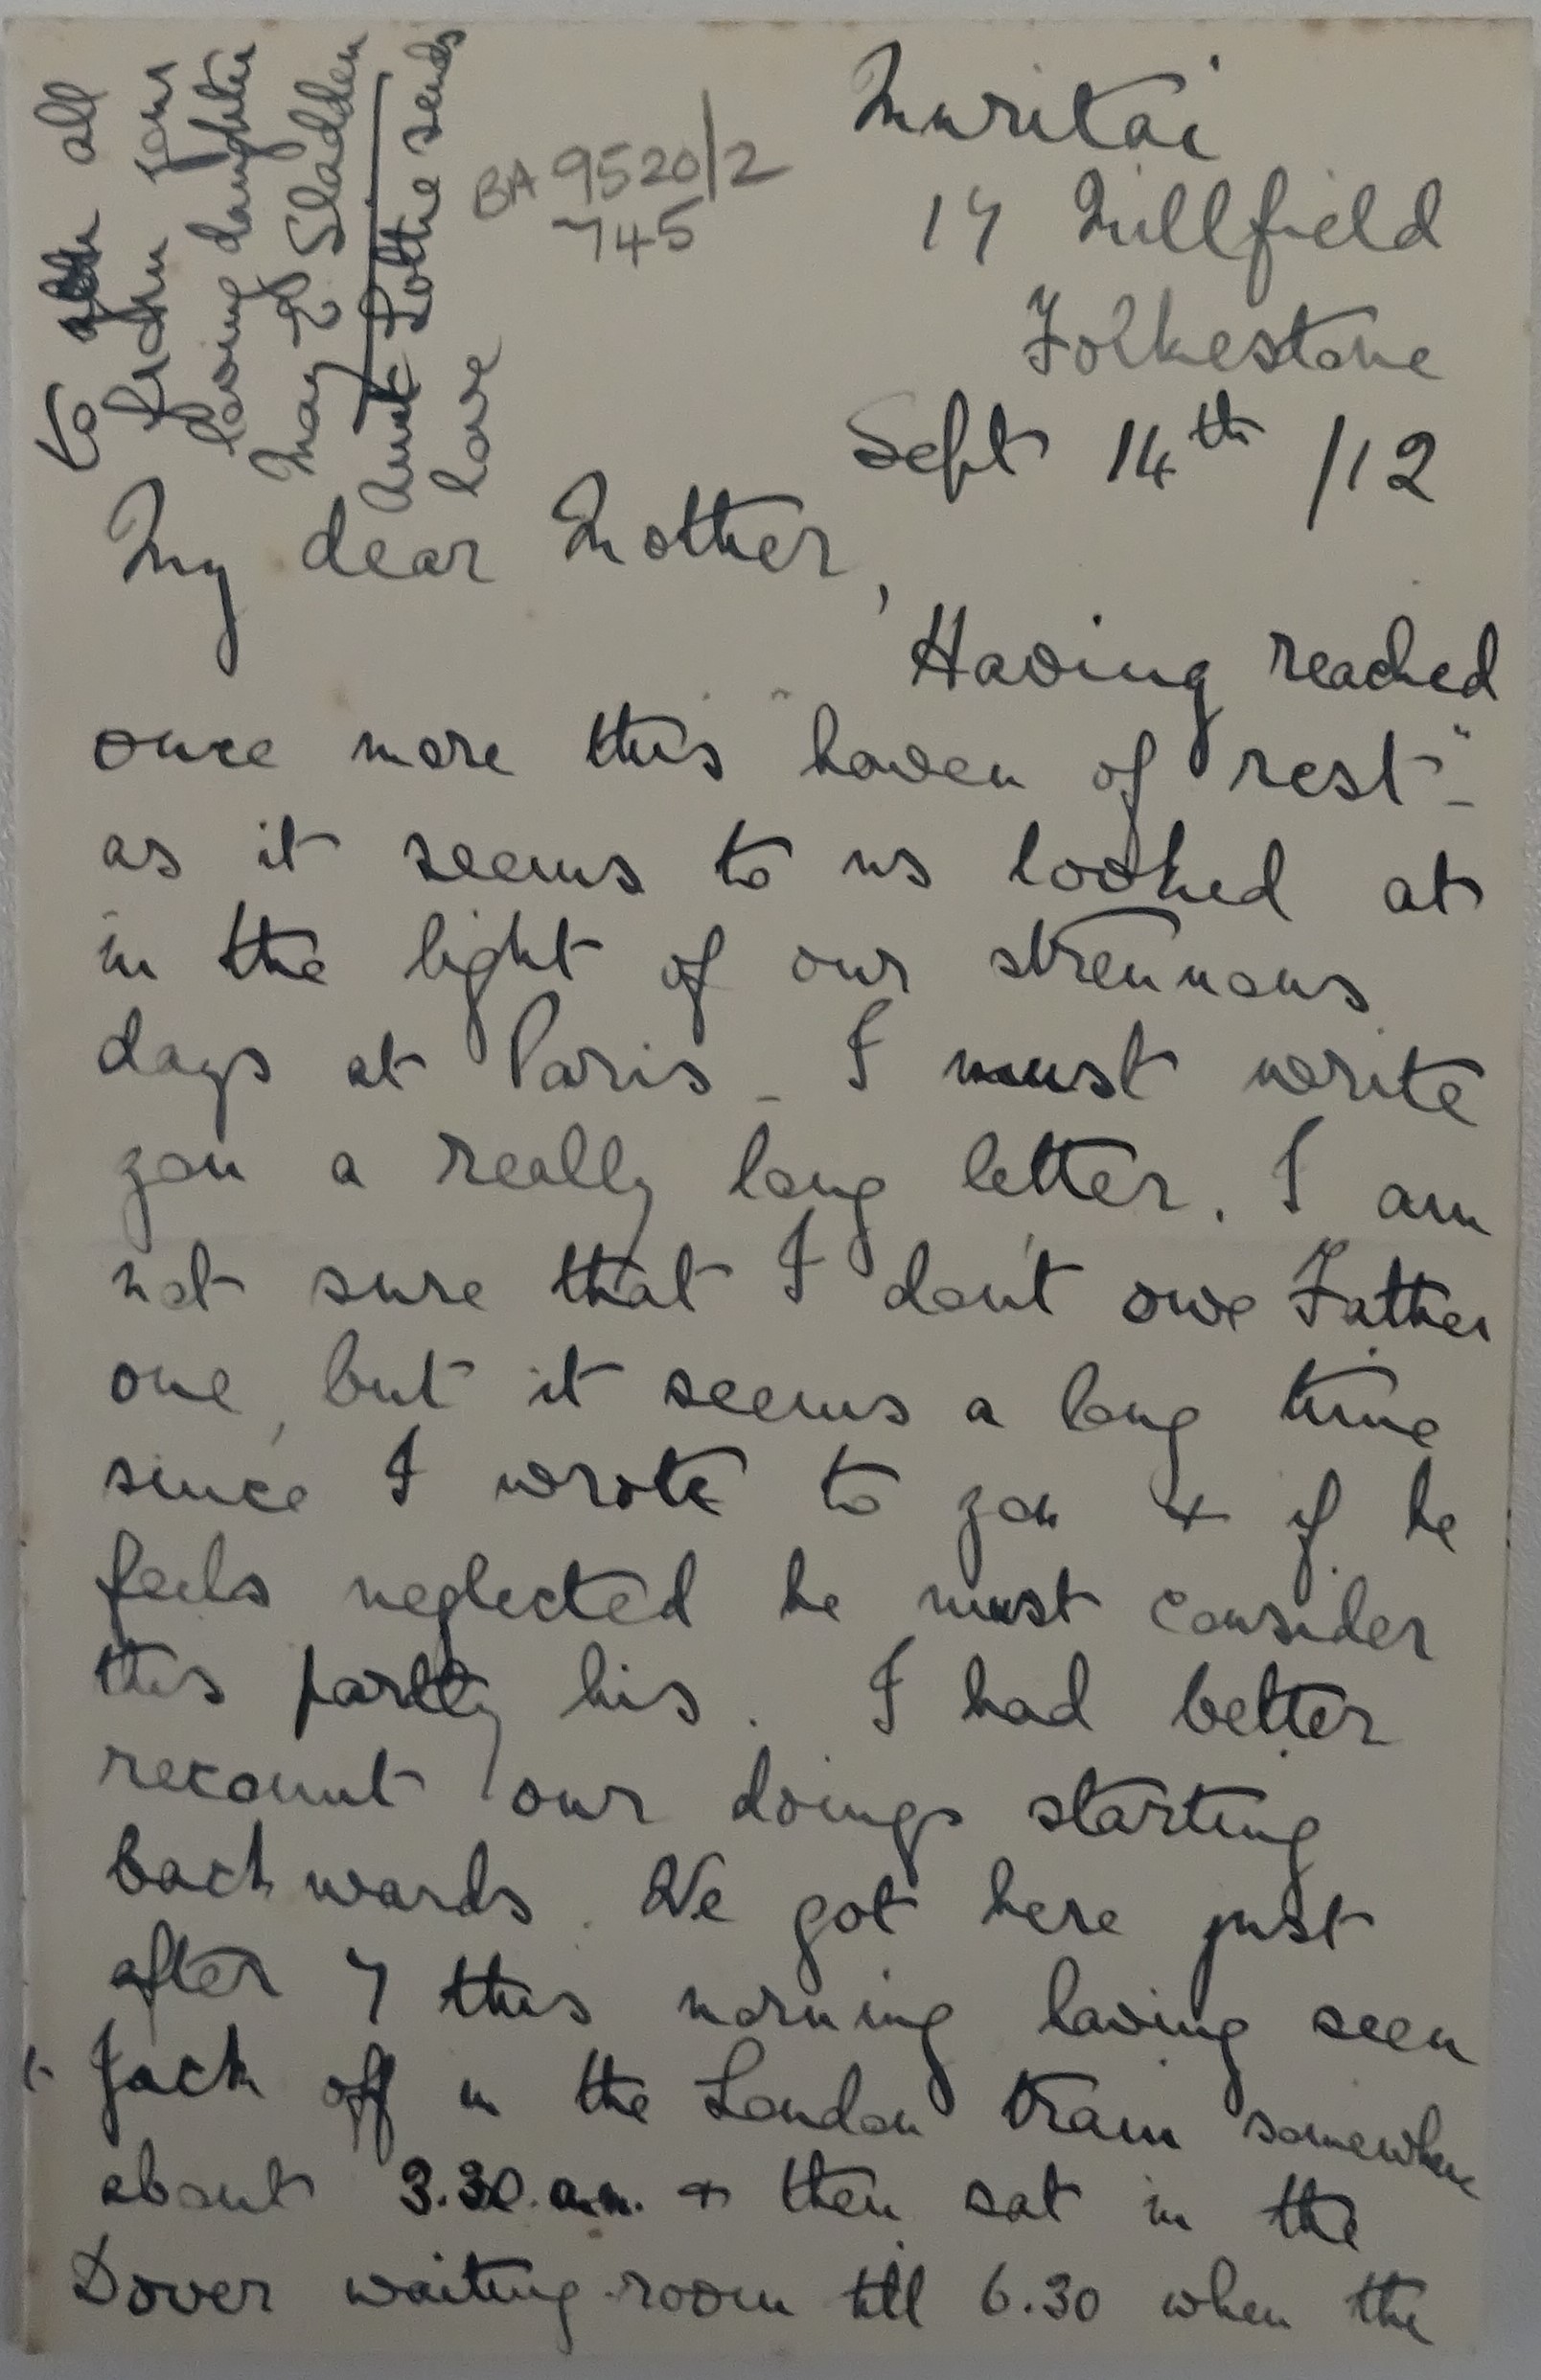 Muritai
17 Millfield
Folkestone
Sept 14th /12
BA 9520/2
745
My dear Mother,
Having reached
once more this "haven of rest" -
as it seems to us looked at
in the light of our strenuous
days at Paris - I must write
you a really long letter. I am
not sure that I don't owe Father
one, but it seems a long time
since I wrote to you & if he
feels neglected he must consider
this partly his. I had better
recount our doings starting
backwards. We got here just
after 7 this morning having seen
Jack off in the London train somewhere
about 3.30 a.m. & then sat in the
Dover waiting-room till 6.30 when the
to all
from your
loving daughter
May E. Sladden
Aunt Lottie sends
love